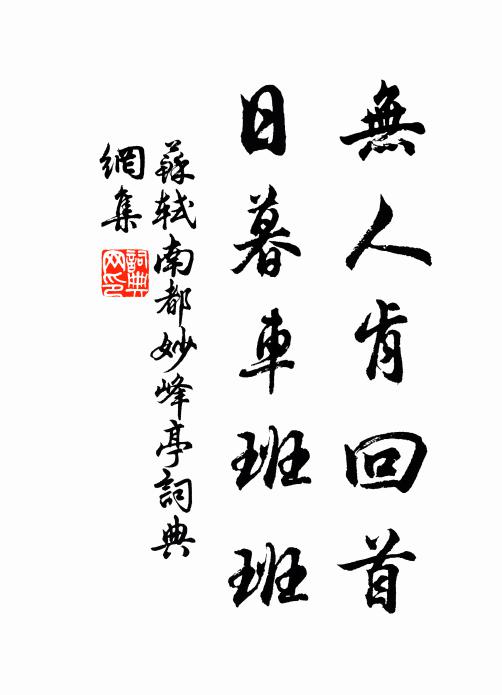 無人肯回首
日暮車班班
蘇軾南都妙峰亭詞典
網集
詞典
网印